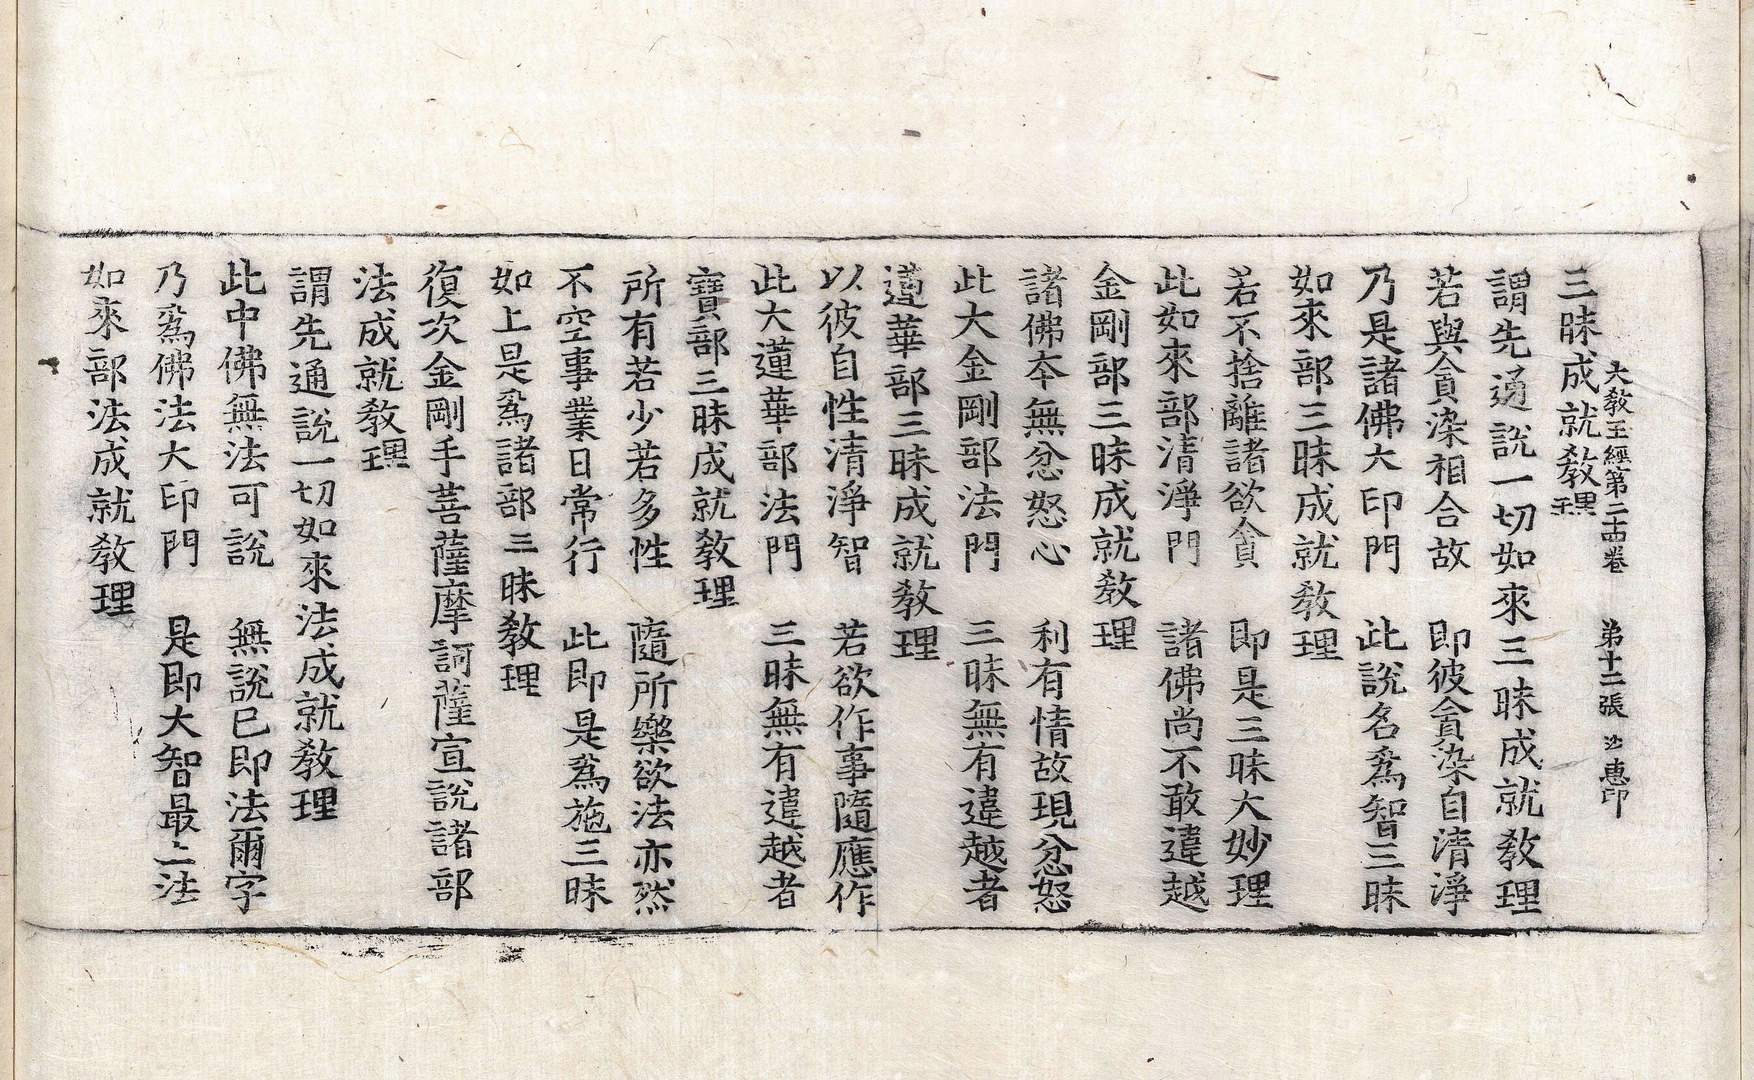 大教王經第二十四卷　第十二張　沙　惠印
三昧成就教理
謂先通說一切如來三昧成就教理
若與貪染相合故　即彼貪染自清淨
乃是諸佛大印門　此說名爲智三昧
如來部三昧成就教理
若不捨離諸欲貪　即是三昧大妙理
此如來部清淨門　諸佛尚不敢違越
金剛部三昧成就教理
諸佛本無忿怒心　利有情故現忿怒
此大金剛部法門　三昧無有違越者
蓮華部三昧成就教理
以彼自性清淨智　若欲作事隨應作
此大蓮華部法門　三昧無有違越者
寶部三昧成就教理
所有若少若多性　隨所樂欲法亦然
不空事業日常行　此即是爲施三昧
如上是爲諸部三昧教理
復次金剛手菩薩摩訶薩宣說諸部
法成就教理
謂先通說一切如來法成就教理
此中佛無法可說　無說已即法爾字
乃爲佛法大印門　是即大智最上法
如來部法成就教理